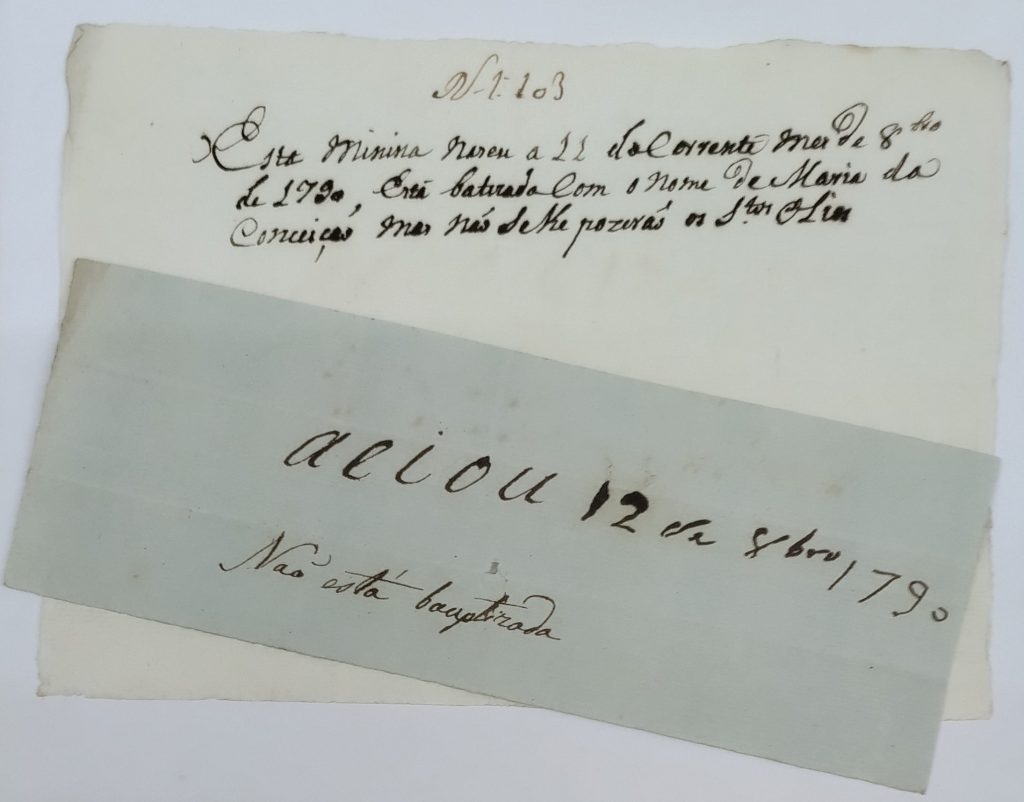 N. 1:103
Esta Minina Naseu a 11 do Corrente Mes de 8bro
de 1790, Está batizada Com o nome De Maria da
Conceição mas não se lhe pozerão os Stos Olios
aeiou 12 de 8bro 1790
Não está bauptizada